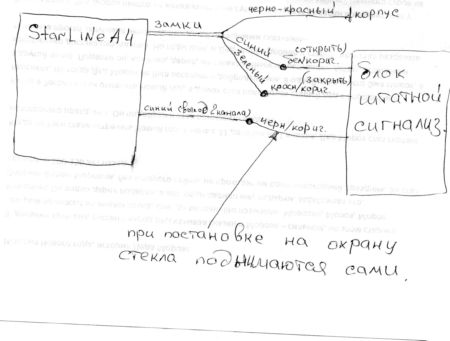 StarLiNe A4
замки
черно-красный
корпус
синий
(открыть)
бел/кориг.
зеленый
(закрыть)
красн/кориг.
блок
штатной
сигнализ.
синий (выход 2 канала)
черн/кориг.
при постановке на охрану
стекла подымаются сами.